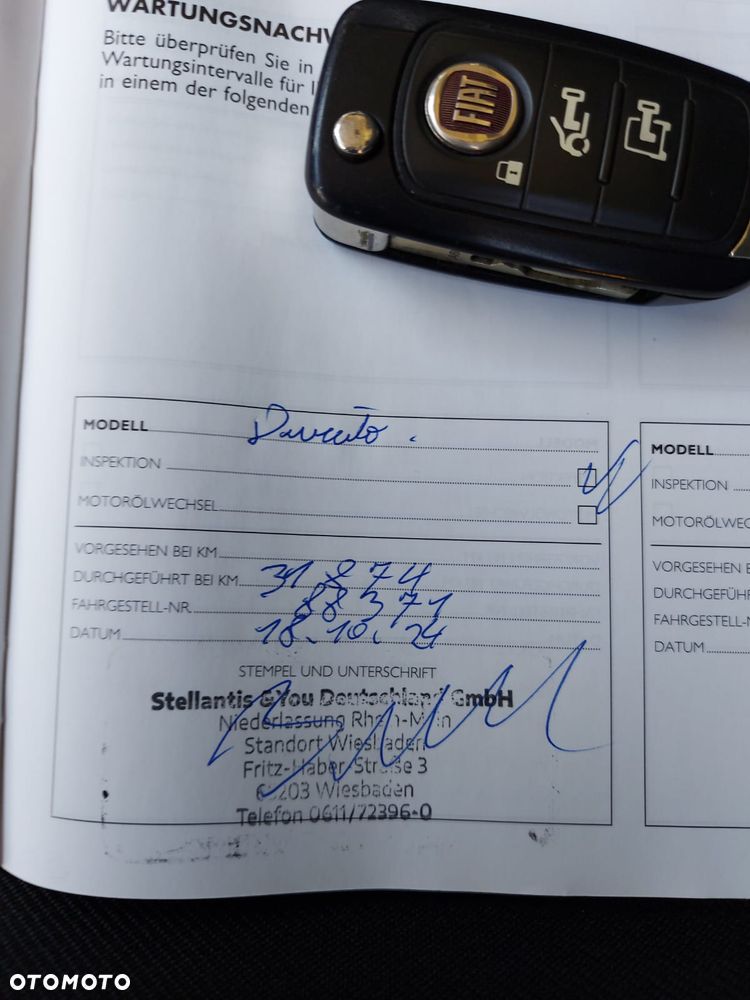 WARTUNGSNACHW
Bitte überprüfen Sie in
Wartungsintervalle für I
in einem der folgenden
FIAT
MODELL Ducato.
INSPEKTION
MOTORÖLWECHSEL
VORGESEHEN BEI KM
DURCHGEFÜHRT BEI KM 31 874
FAHRGESTELL-NR. 88371
DATUM 18.10.24
STEMPEL UND UNTERSCHRIFT
Stellantis &You Deutschland GmbH
Niederlassung Rhein-Main
Standort Wiesbaden
Fritz-Haber Straße 3
65203 Wiesbaden
Telefon 0611/72396-0
MODELL
INSPEKTION
MOTORÖLWEC
VORGESEHEN B
DURCHGEFÜHR
FAHRGESTELL-N
DATUM
OTOMOTO